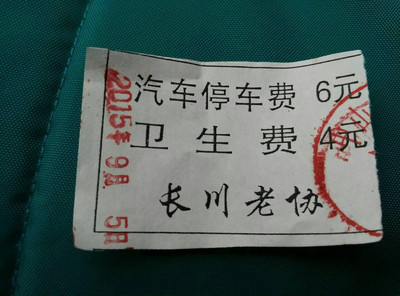 汽车停车费 6元
卫生费 4元
长川老协
2015年9月5日